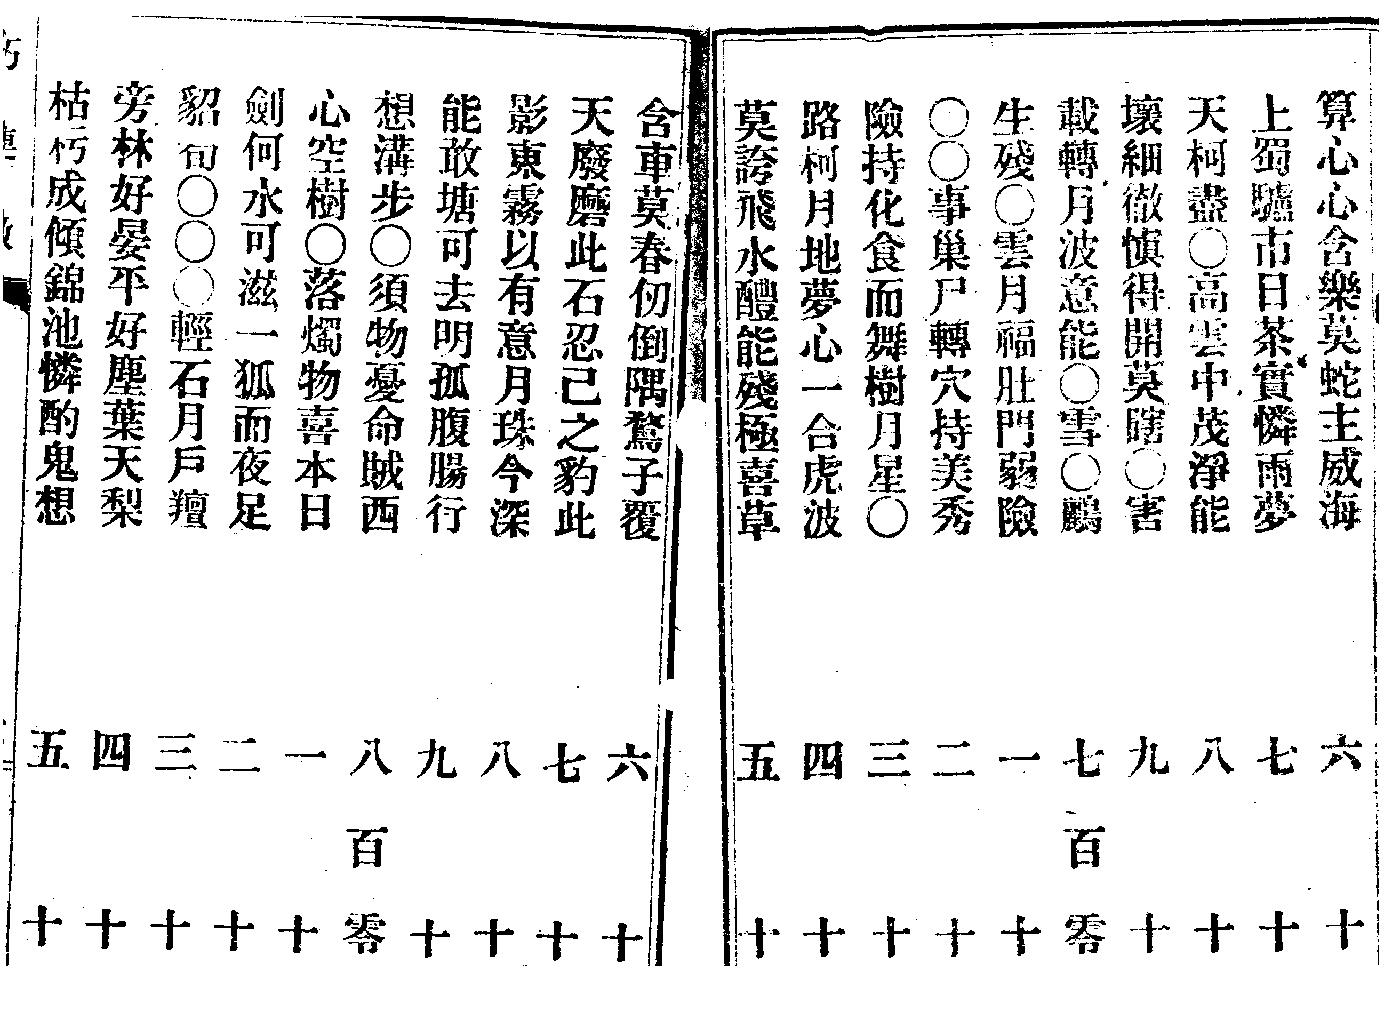 算心心含樂莫蛇主威海 六 十
上蜀驢市日茶實憐雨夢 七 十
天柯盡〇高雲中茂淨能 八 十
壞細徹慎得開莫瞎〇害 九 十
載轉月波意能〇雪〇鸝 七百零
生殘〇雲月福肚門弱險 一 十
〇〇事巢尸轉穴持美秀 二 十
險持化食而舞樹月星〇 三 十
路柯月地夢心一合虎波 四 十
莫誇飛水醴能殘極喜草 五 十
含車莫春仞倒隅騖子覆 六 十
天廢磨此石忍己之豹此 七 十
影東霧以有意月珠今深 八 十
能敢塘可去明孤腹腸行 九 十
想溝步〇須物憂命賊西 八百零
心空樹〇落燭物喜本日 一 十
劍何水可滋一狐而夜足 二 十
貂旬〇〇〇輕石月戶羶 三 十
旁林好晏平好塵葉天梨 四 十
枯朽成傾錦池憐酌鬼想 五 十